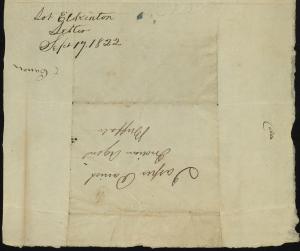 Jos Elkinton
Letter
Sept 17. 1822
Jasper Parrish
Indian Agent
Buffalo